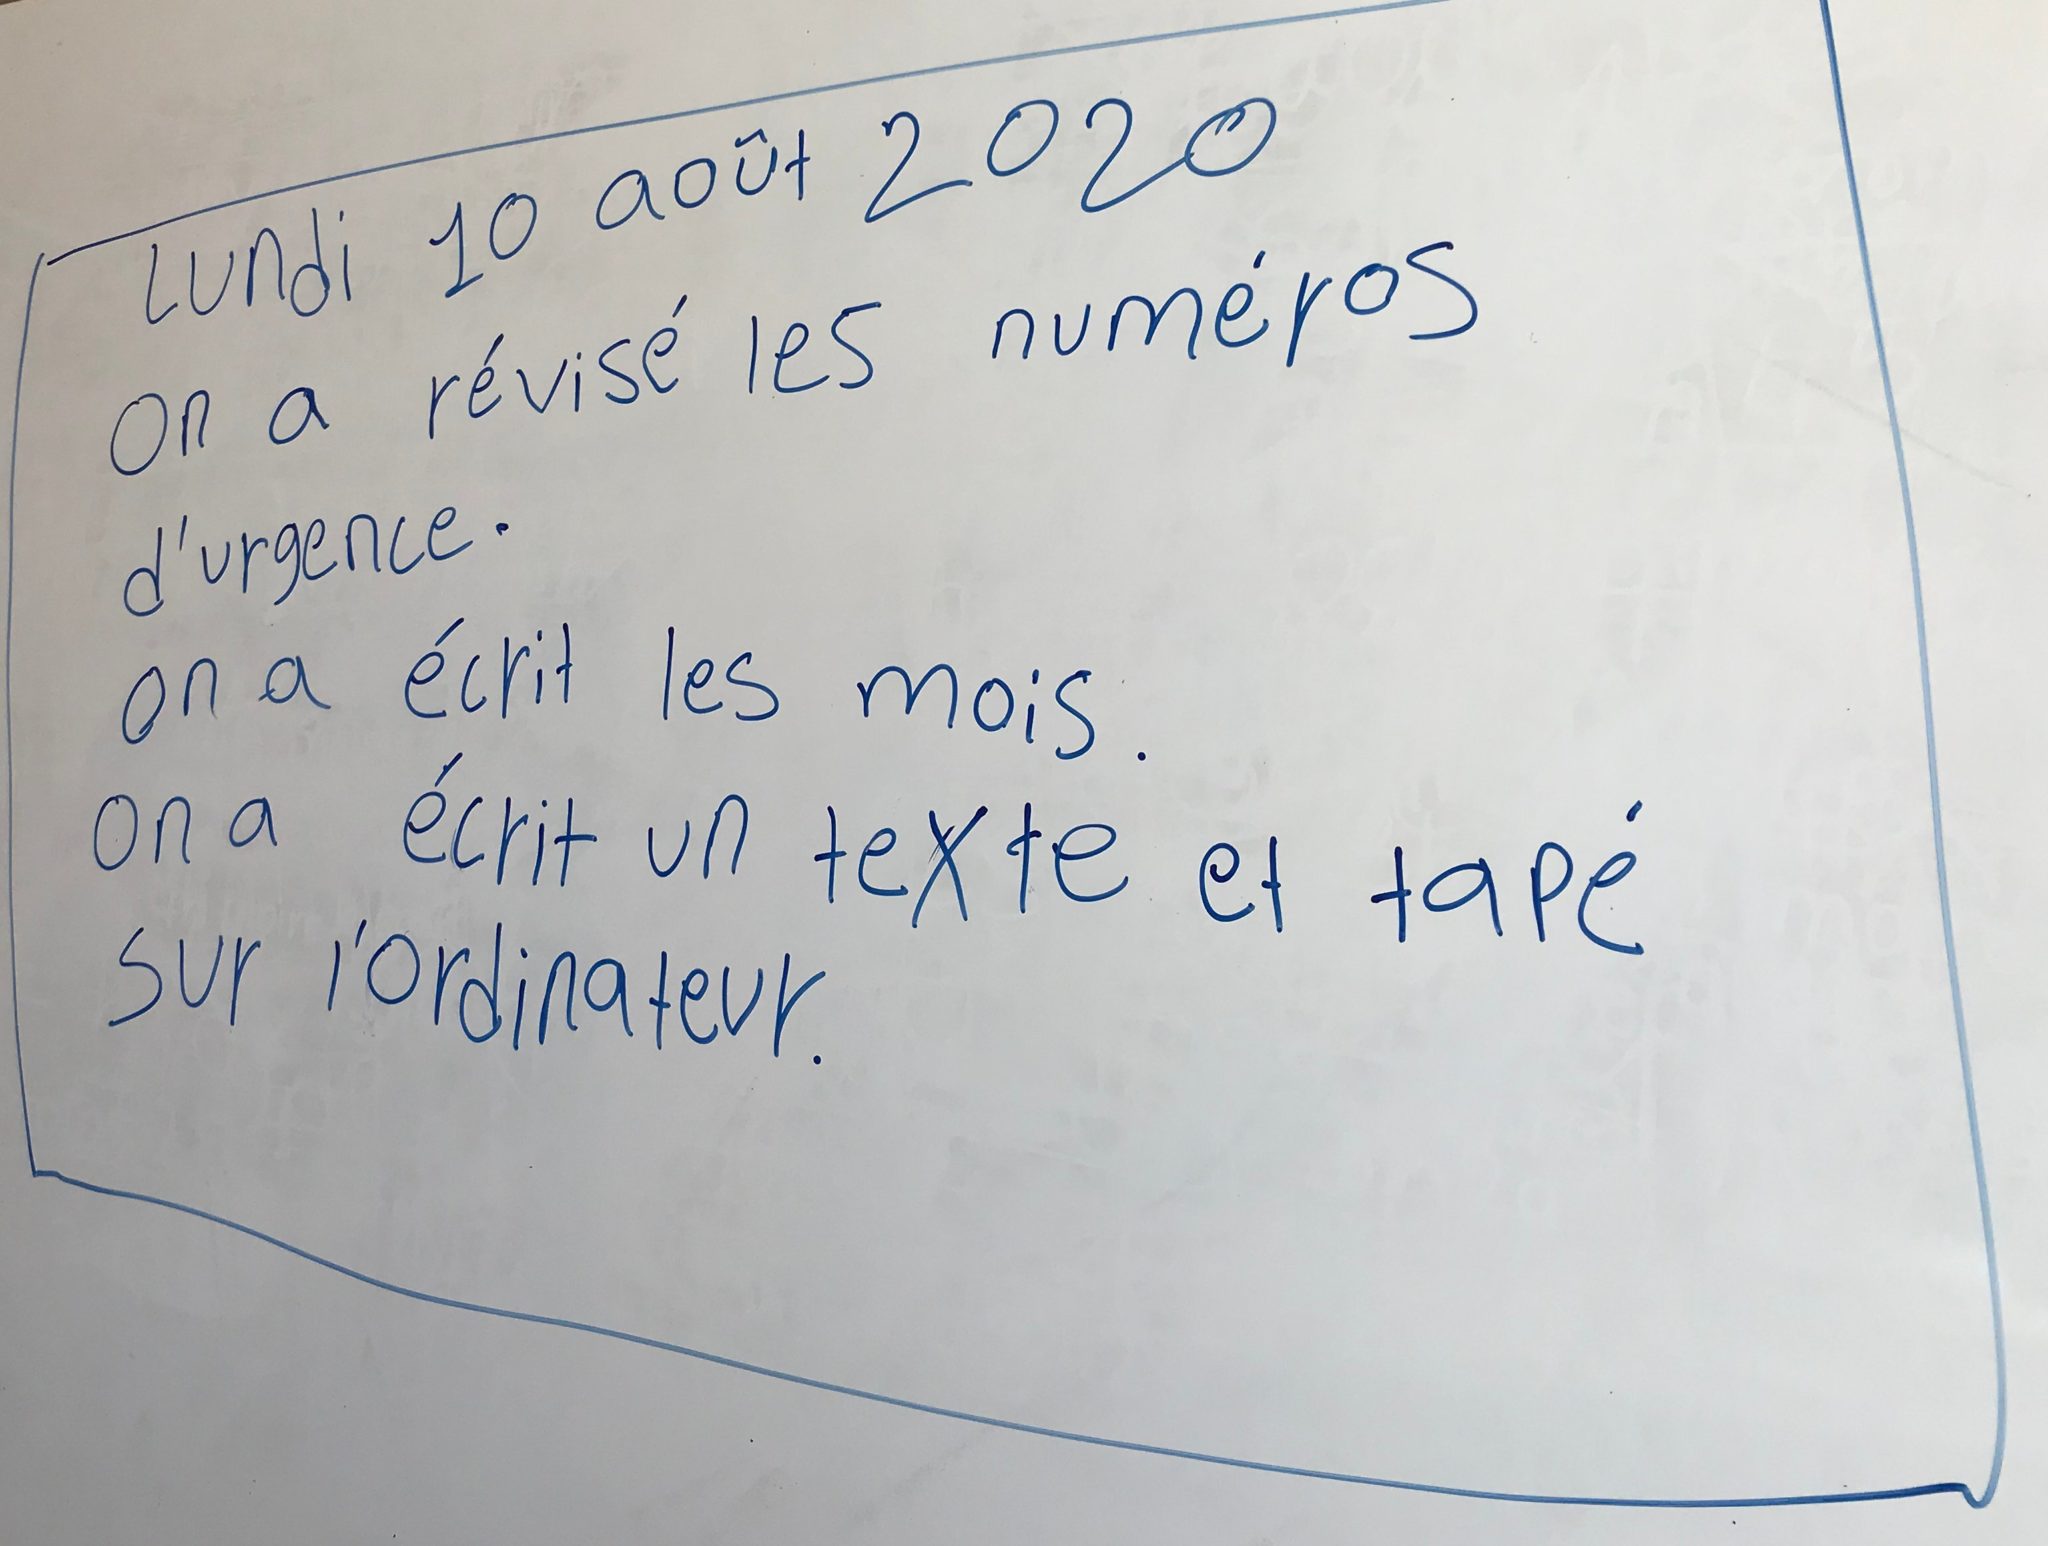 Lundi 10 août 2020
On a révisé les numéros
d'urgence.
on a écrit les mois.
on a écrit un texte et tapé
sur l'ordinateur.